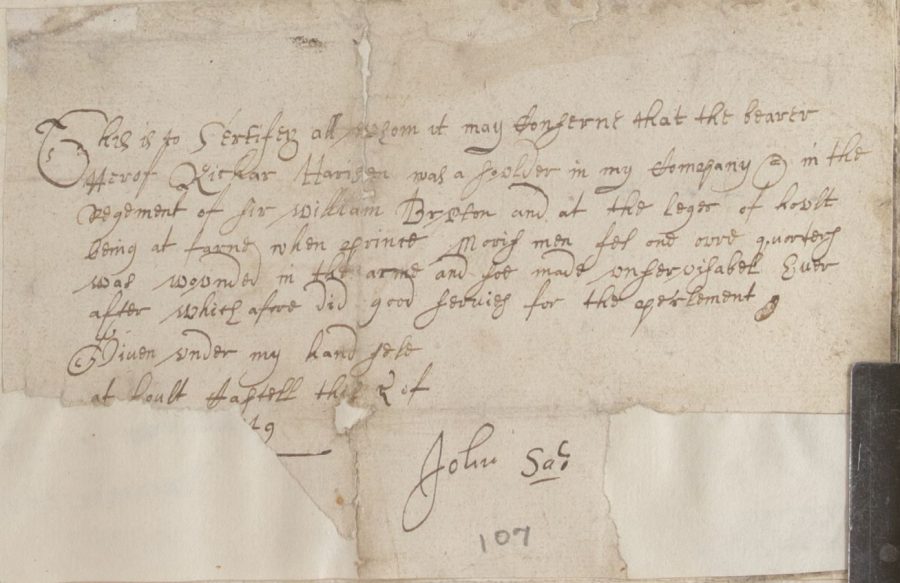 This is to Sertifey all whom it may Conserne that the bearer
Herof Richar Harisen was a soulder in my Company in the
Regement of sir William Bryton and at the leger of hoult
being at farne when prince Moris men fel one ovre quarters
was wounded in the arme and soe made unservisabel Ever
after which afore did good servies for the perlement
Given under my hand sele
at hoult Kastell this
19
John Sa
107